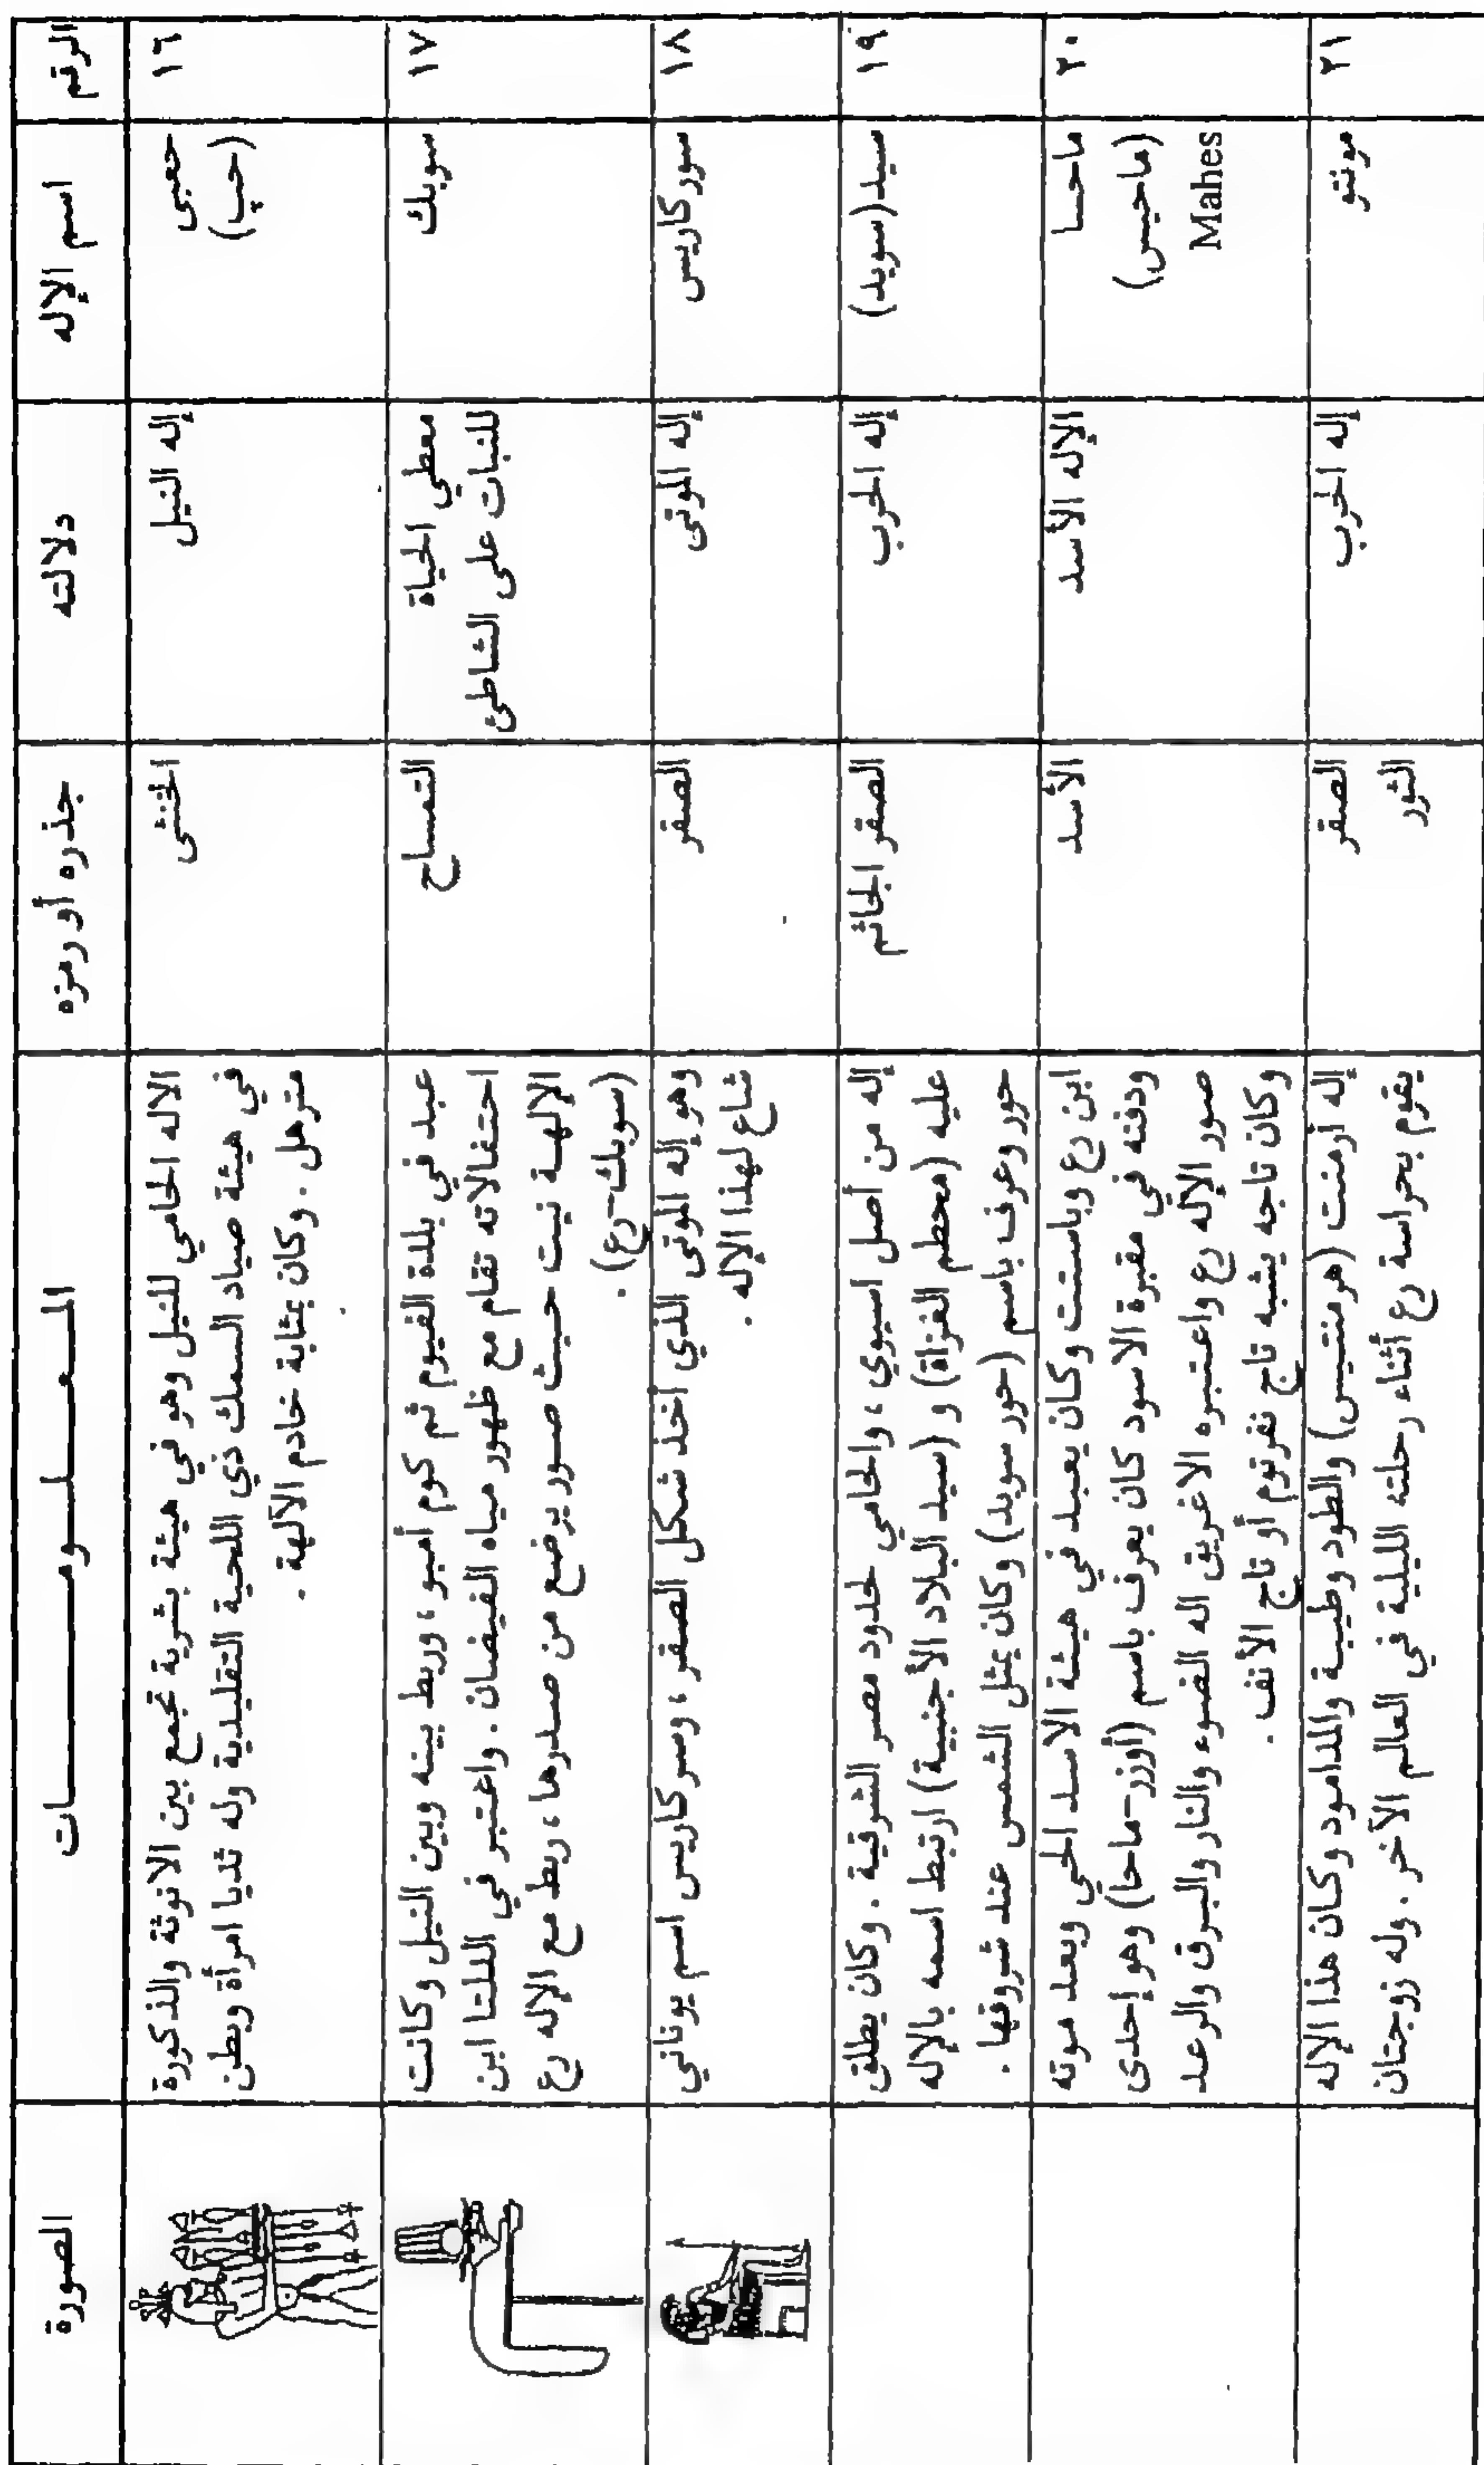 الرقم
اسم الإله
دلالته
جذره أو رمزه
المعلومات
الصورة
١٦
حعبى
(حپ)
إله النيل
الخنثى
الاله الحامي للنيل وهو في هيئة بشرية تجمع بين الانوثة والذكورة
في هيئة صياد السمك ذي اللحية التقليدية وله ثديا امرأة وبطن
مترهل . وكان بمثابة خادم الآلهة .
١٧
سوبك
معطي الحياة
للنبات على الشاطئ
التمساح
عبد في بلدة الفيوم ثم كوم أمبو ، وربط بينه وبين النيل وكانت
احتفالاته تقام مع ظهور مياه الفيضان . واعتبر في الدلتا ابن
الإلهة نيت حيث صور يرضع من صدرها ، ربط مع الإله رع
(سوبك-رع) .
١٨
سوركاريس
إله الموتى
الصقر
وهو إله الموتى الذي أخذ شكل الصقر ، وسركاريس اسم يوناني
شاع لهذا الإله .
١٩
سيد(سويد)
إله الحرب
الصقر الجاثم
إله من أصل اسيوي ، والحامي لحدود مصر الشرقية . وكان يطلق
عليه (محطم الغزاة) و (سيد البلاد الأجنبية) ارتبط اسمه بالإله
حور وعرف باسم (حور سويد) وكان يمثل الشمس عند شروقها .
٢٠
ماحسا
(ماحيس)
Mahes
الإله الأسد
الأسد
ابن رع وباستت وكان يعبد في هيئة الاسد الحي وبعد موته
ودفنه في مقبرة الاسود كان يعرف باسم (أوزر-ماحا) وهو إحدى
صور الإله رع واعتبره الاغريق اله الضوء والنار والبرق والرعد
وكان تاجه يشبه تاج نفرتوم أو تاج الأنف .
٢١
مونتو
إله الحرب
الصقر
الثور
إله أرمنت (هرمنتيس) والطود وطيبة والمدامود وكان هذا الإله
يقوم بحراسة رع أثناء رحلته الليلية في العالم الآخر . وله زوجتان